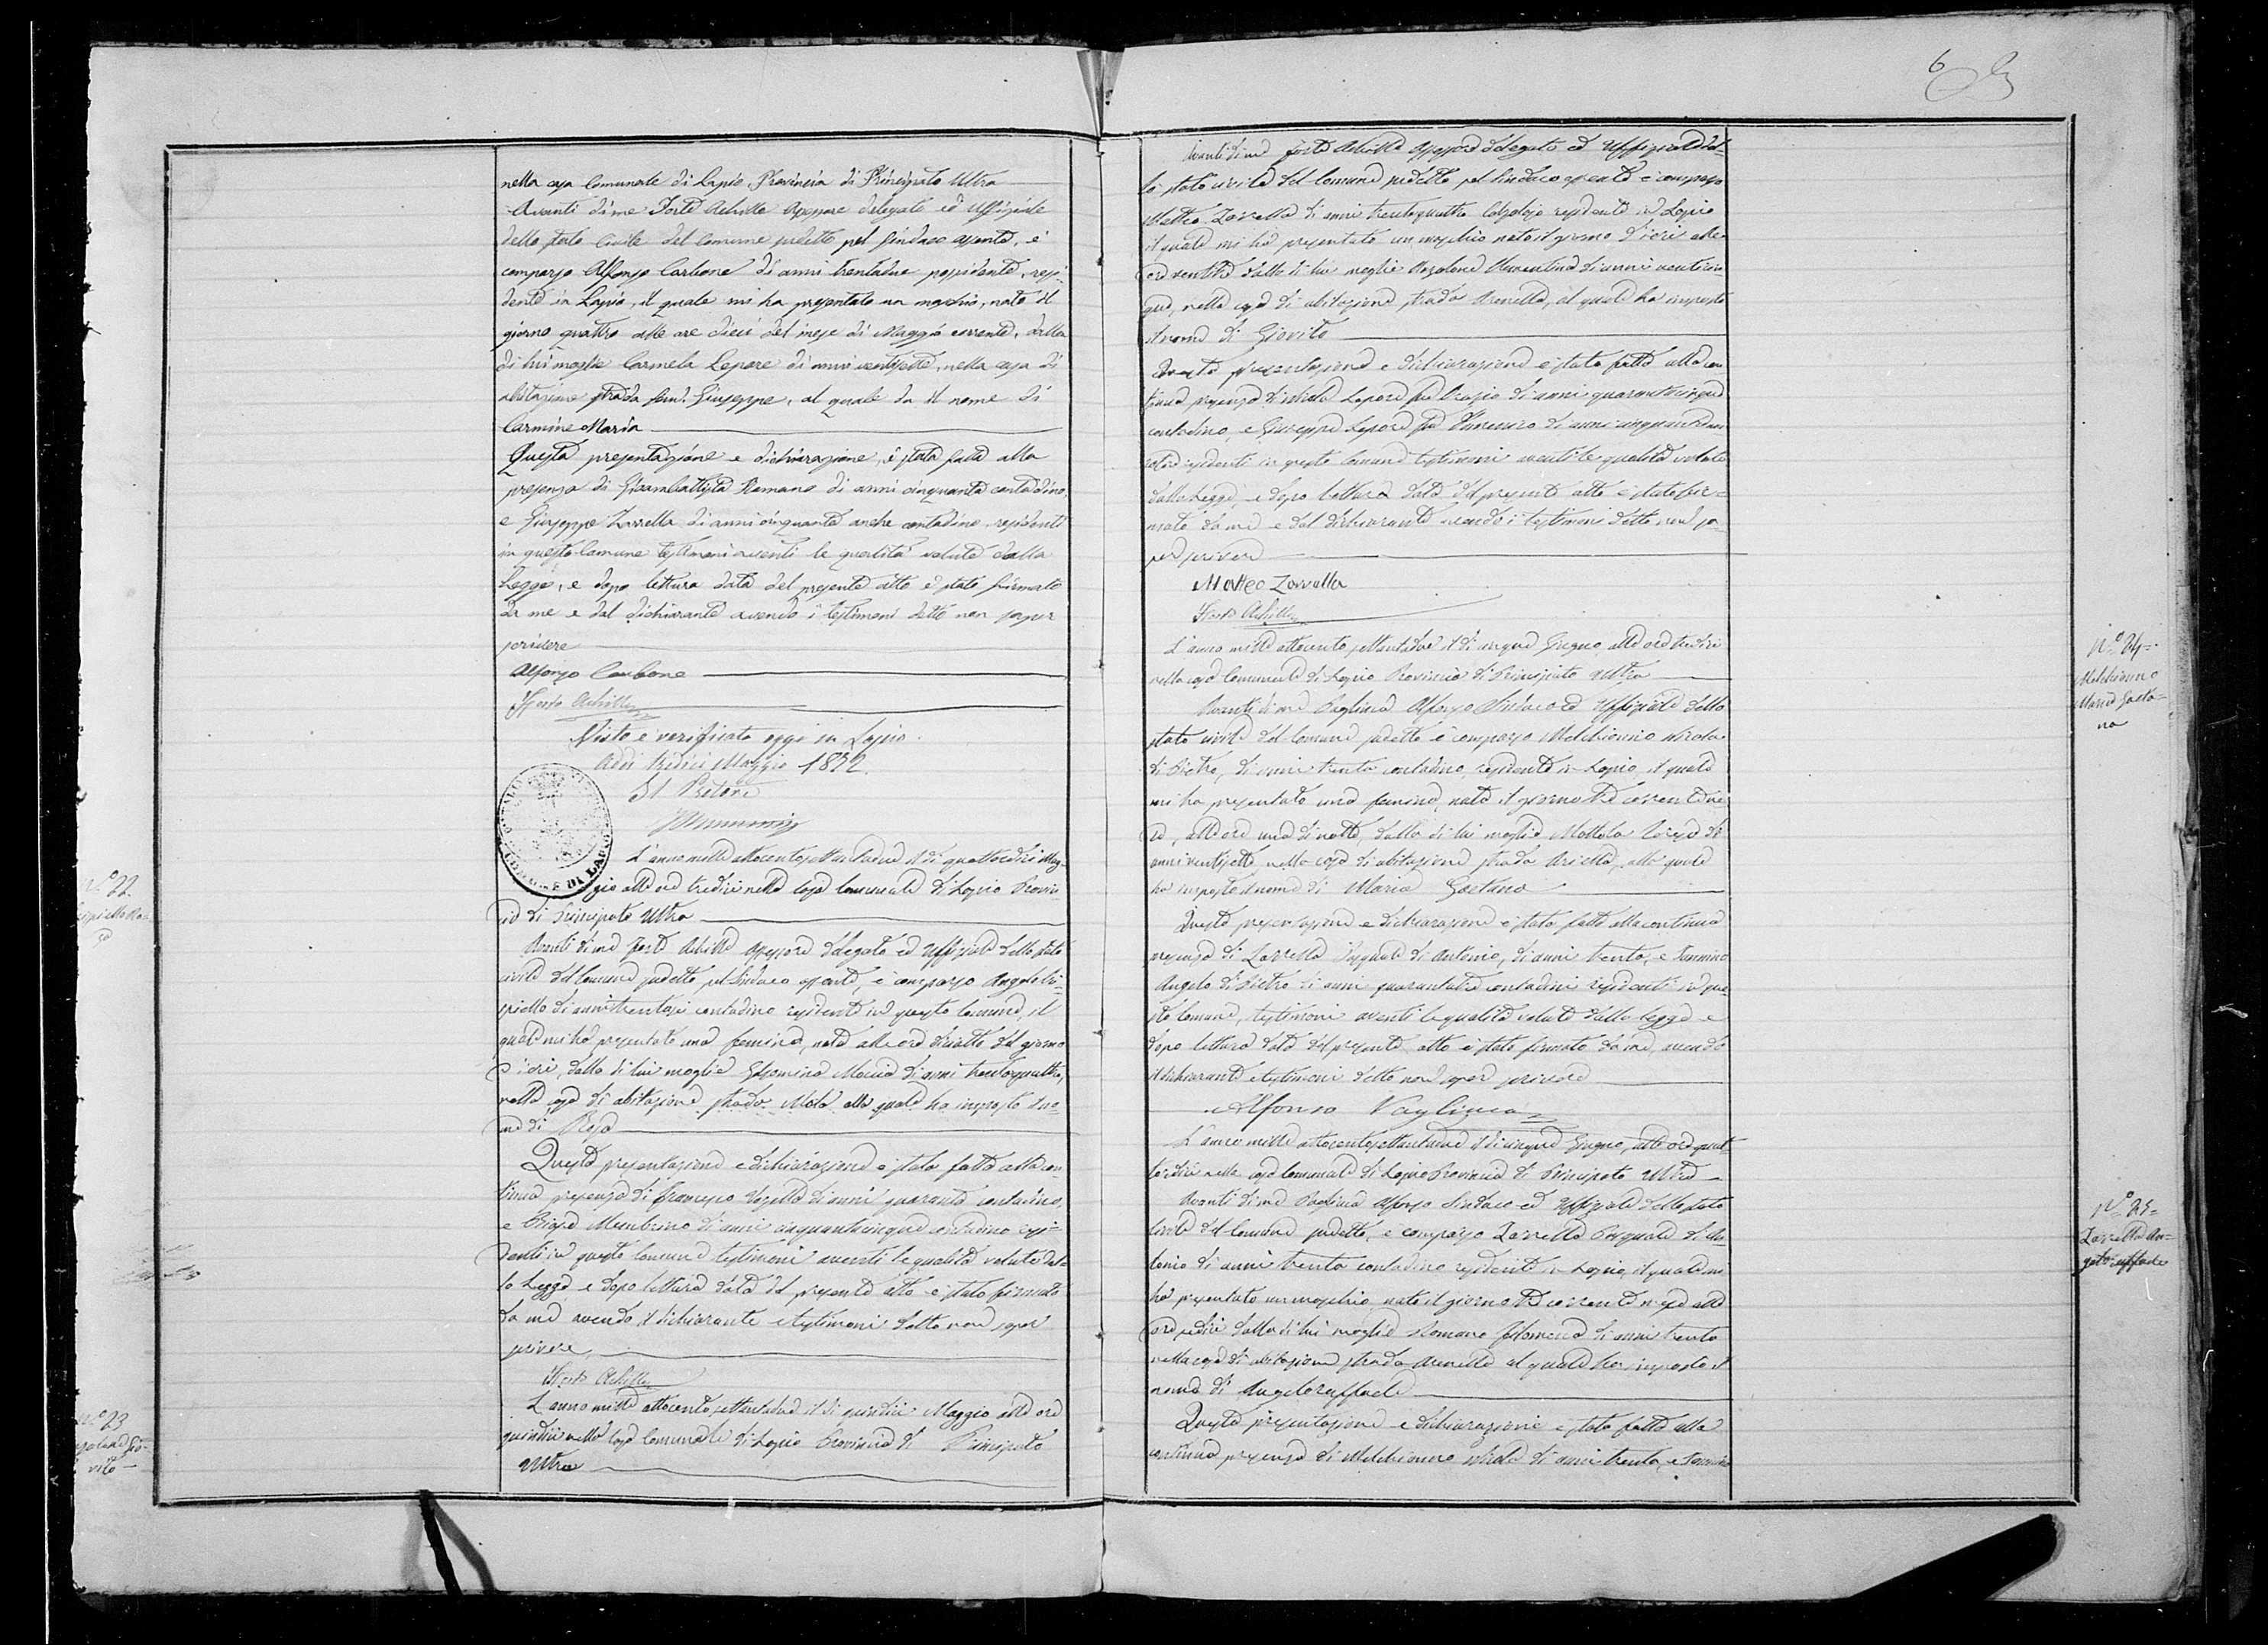 6
nella casa Comunale di Lapio Provincia di Principato Ultra
Avanti di me Forte Achille Assessore delegato ed Uffiziale
dello stato Civile del Comune sudetto pel Sindaco assente, è
comparso Alfonso Carbone di anni trentadue possidente, resi
dente in Lapio, il quale mi ha presentato un maschio, nato il
giorno quattro alle ore dieci del mese di Maggio corrente, dalla
di lui moglie Carmela Lepore di anni ventisette, nella casa di
abitazione strada San Giuseppe, al quale da il nome di
Carmine Maria
Questa presentazione e dichiarazione, è stata fatta alla
presenza di Giambattista Romano di anni cinquanta contadino,
e Giuseppe Zarrella di anni cinquanta anche contadino, residenti
in questo Comune testimoni aventi le qualità volute dalla
Legge, e dopo lettura data del presente atto è stato firmato
da me e dal dichiarante avendo i testimoni detto non saper
scrivere
Alfonso Carbone
Forte Achille
Visto e verificato oggi in Lapio
Addì tredici Maggio 1872
Il Pretore
N.º 22
L'anno mille ottocento settantadue il dì quattordici Mag-
gio alle ore tredici nella casa Comunale di Lapio Provin-
cia di Principato Ultra
Avanti di me Forte Achille Assessore delegato ed Uffiziale dello stato
civile del Comune sudetto pel Sindaco assente, è comparso Angelo
di anni trentasei contadino residente in questo Comune, il
quale mi ha presentato una femina, nata alle ore diciotto del giorno
d'ieri, dalla di lui moglie Gelsomina Moccia di anni trentaquattro,
nella casa di abitazione strada alla quale ha imposto il no-
me di Rosa
Questa presentazione e dichiarazione è stata fatta alla con-
tinua presenza di Francesco di anni quaranta contadino,
e Membrino di anni cinquantacinque contadino resi-
denti in questo Comune testimoni aventi le qualità volute dal-
la Legge e dopo lettura data del presente atto è stato firmato
da me avendo il dichiarante e testimoni detto non saper
scrivere
Forte Achille
N.º 23
L'anno mille ottocento settantadue il dì quindici Maggio alle ore
quindici nella casa Comunale di Lapio Provincia di Principato
Ultra
Avanti di me Forte Achille Assessore delegato ed Uffiziale del-
lo stato civile del Comune sudetto pel Sindaco assente è comparso
Matteo Zarrella di anni trentaquattro Calzolajo residente in Lapio
il quale mi ha presentato un maschio nato il giorno d'ieri alle
ore ventitre dalla di lui moglie di anni venticin-
que, nella casa di abitazione strada Arenella, al quale ha imposto
il nome di Giovito
Questa presentazione e dichiarazione è stata fatta alla con
tinua presenza di Nicola Lepore fu Orazio di anni quarantacinque
contadino, e Giuseppe Lepore fu di anni cinquanta
residenti in questo Comune testimoni aventi le qualità volute
dalla Legge, e dopo lettura data del presente atto è stato fir-
mato da me e dal dichiarante avendo i testimoni detto non sa-
per scrivere
Matteo Zarrella
Forte Achille
N.º 24
Melchionno
Maria Gaeta-
na
L'anno mille ottocento settantadue il dì cinque Giugno alle ore tredici
nella casa Comunale di Lapio Provincia di Principato Ultra
Avanti di me Vaglieca Alfonso Sindaco ed Uffiziale dello
stato civile del Comune sudetto è comparso Melchionno Nicola
di Pietro, di anni trenta contadino, residente in Lapio, il quale
mi ha presentato una femina, nata il giorno tre corrente me
se, alle ore una di notte, dalla di lui moglie Mottola Teresa di
anni ventisette nella casa di abitazione strada Ariella, alla quale
ha imposto il nome di Maria Gaetana
Questa presentazione e dichiarazione è stata fatta alla continua
presenza di Zarrella Pasquale di Antonio, di anni trenta, e Iannino
Angelo di Pietro di anni quarantatre contadini residenti in que-
sto Comune, testimoni aventi le qualità volute dalla Legge e
dopo lettura data del presente atto è stato firmato da me, avendo
il dichiarante e testimoni detto non saper scrivere
Alfonso Vaglieca
N.º 25
Zarrella An-
geloraffaele
L'anno mille ottocento settantadue il dì cinque Giugno, alle ore quat-
tordici nella casa Comunale di Lapio Provincia di Principato Ultra
Avanti di me Vaglieca Alfonso Sindaco ed Uffiziale dello stato
civile del Comune sudetto, è comparso Zarrella Pasquale di An-
tonio di anni trenta contadino residente in Lapio, il quale mi
ha presentato un maschio, nato il giorno tre corrente mese alle
ore sedici dalla di lui moglie Romano Filomena di anni trenta
nella casa di abitazione strada Arenella al quale ha imposto il
nome di Angeloraffaele
Questa presentazione e dichiarazione è stata fatta alla
continua presenza di Melchionno Nicola di anni trenta, e Iannino